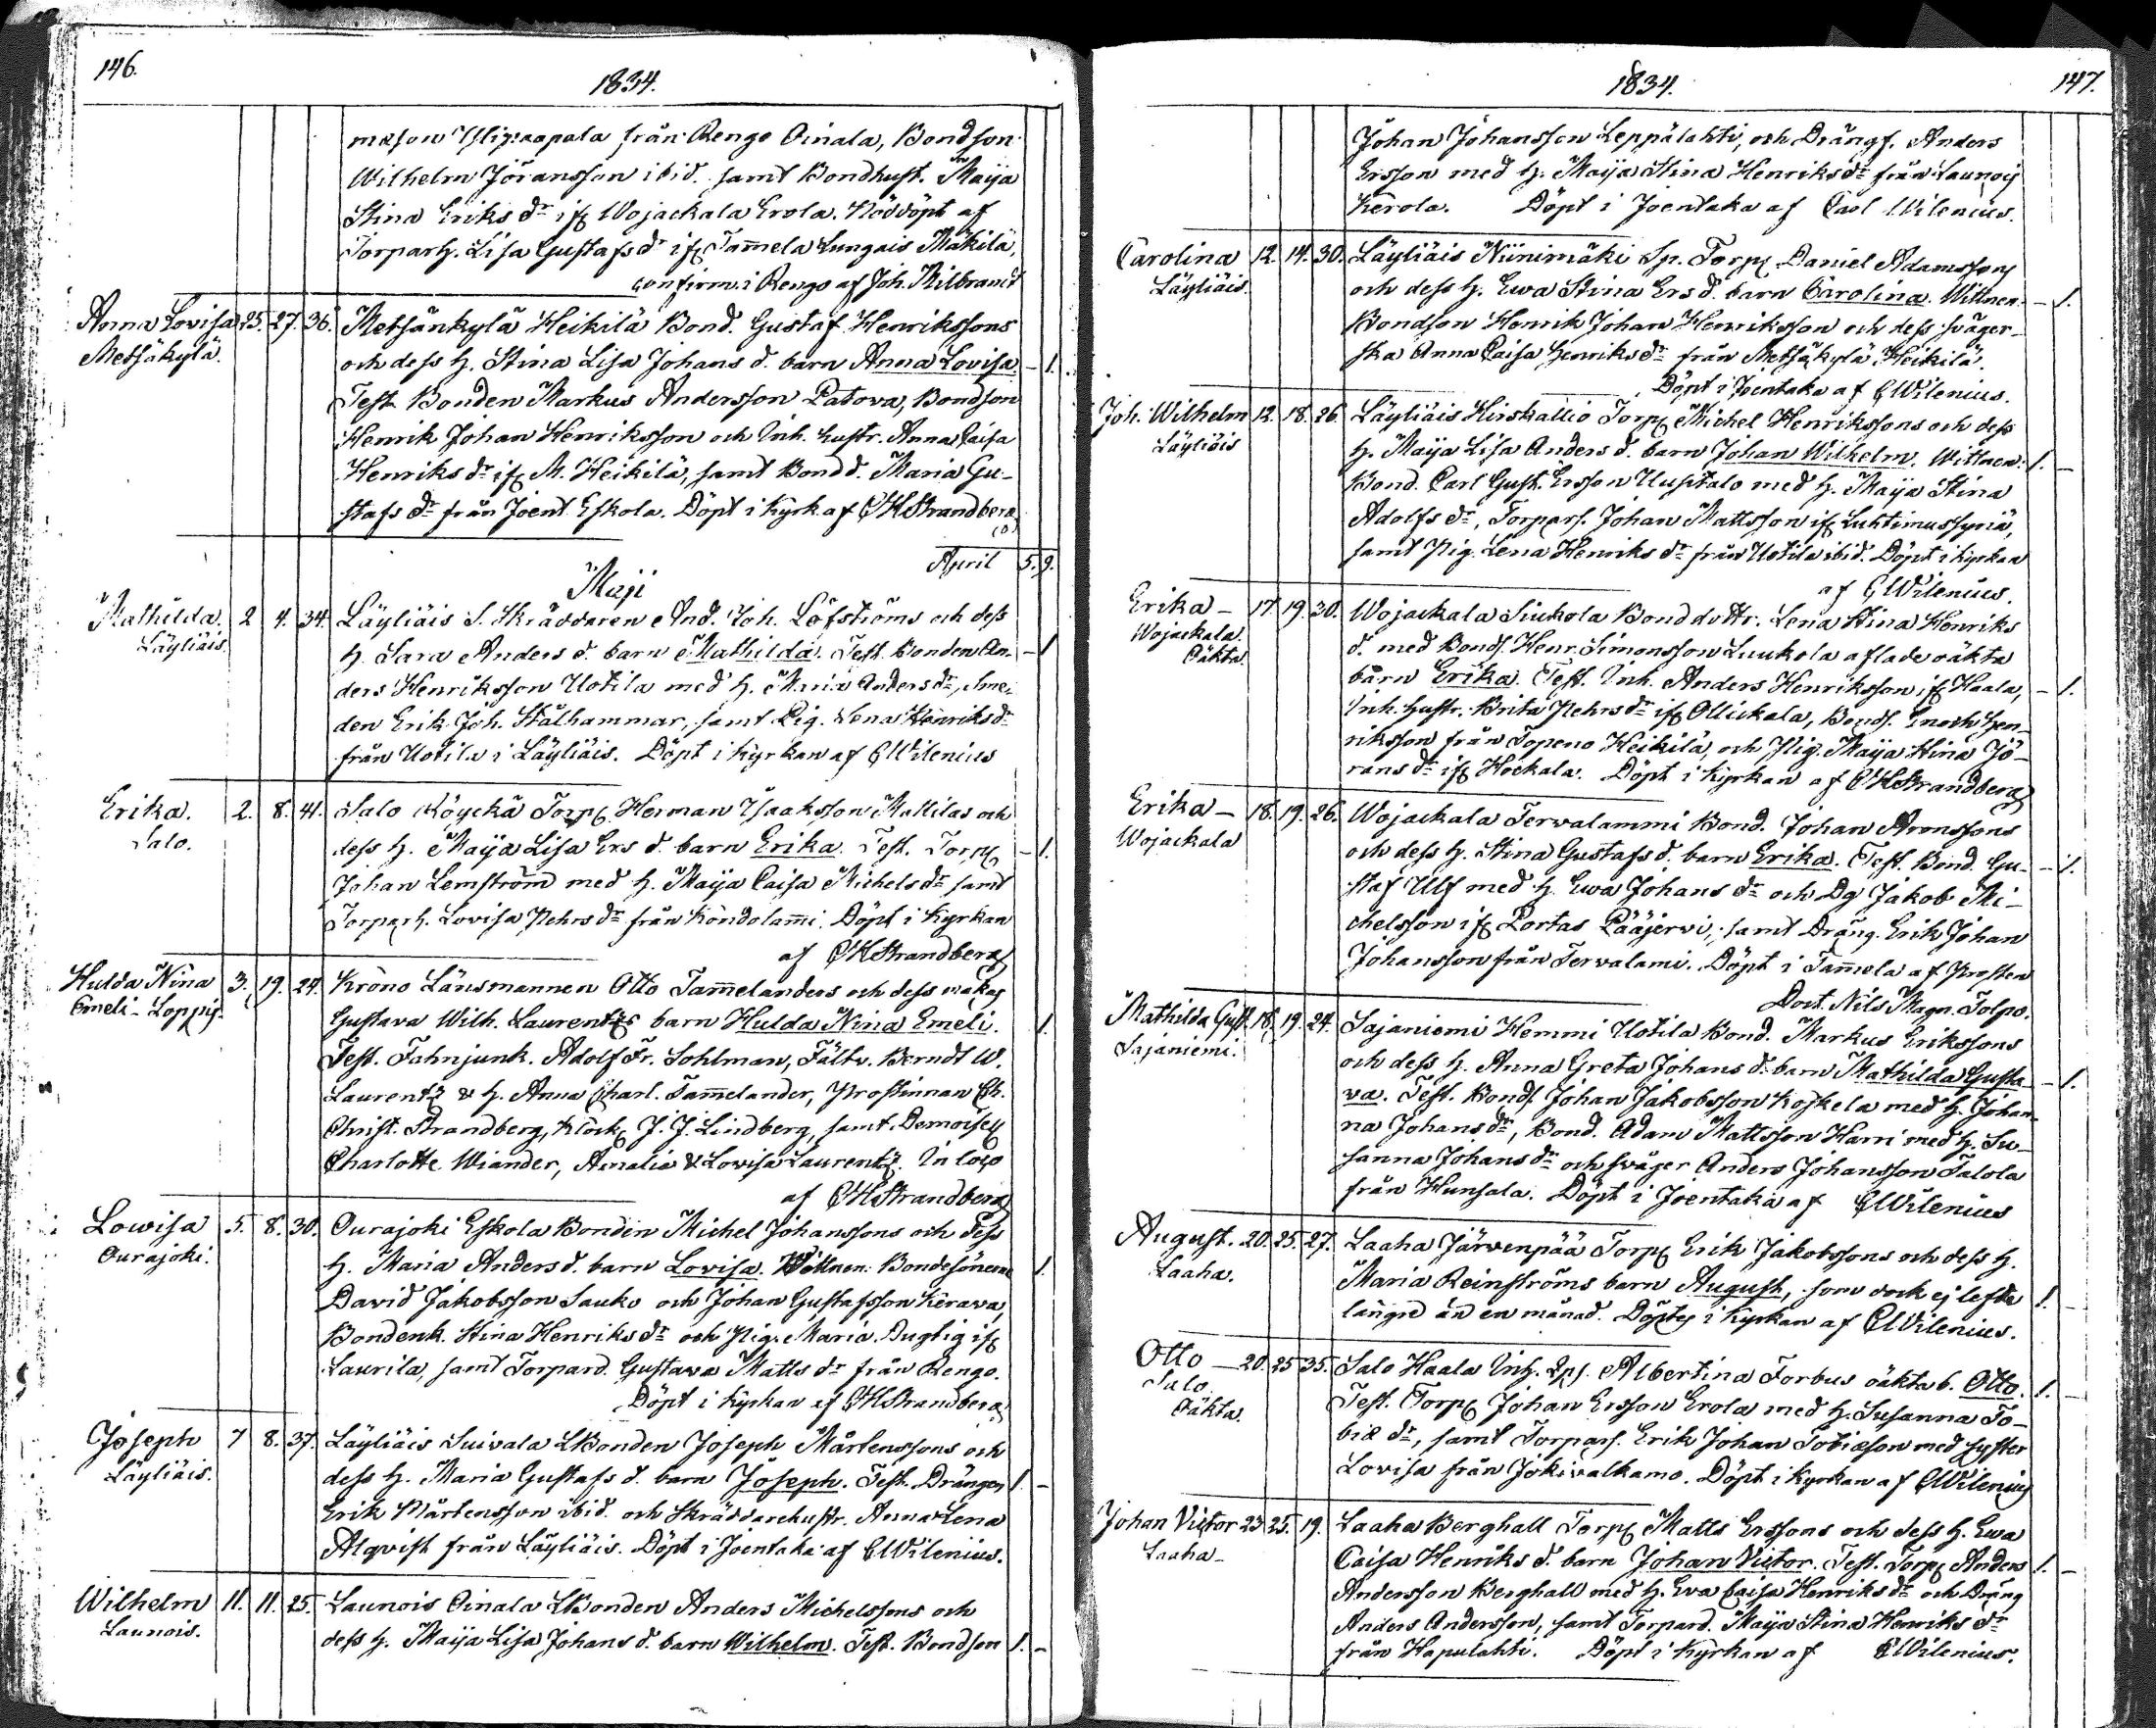 146.
1834.
från Rengo Oinala, Bondson
Wilhelm Jöransson ibid. samt Bondhust. Maija
Stina Eriks dr. ifr. Wojackala Erola. Nöddöpt af
Torparh. Lisa Gustafs dr. ifr. Tam̄ela Lungais Mäkilä,
confirm. i Rengo af Joh. Milbrandt
Anna Lovisa 25. 27. 36. Metsänkylä Heikilä Bond. Gustaf Henrikssons
Metsäkylä. och dess h. Stina Lisa Johans d. barn Anna Lovisa. – 1.
Test. Bonden Markus Andersson Patova, Bondson
Henrik Johan Henriksson och Inh. hustr. Anna Caisa
Henriks dr. ifr. M. Heikilä, samt Bondd. Maria Gu-
stafs dr. från Joent. Eskola. Döpt i Kyrk. af CHStrandberg
April 5. 9.
Maji
Mathilda. 2 4. 34. Läyliäis S. Skräddaren And. Joh. Löfströms och dess
Läyliäis. h. Sara Anders d. barn Mathilda. Test. Bonden An- – 1
ders Henriksson Uotila med h. Maria Anders dr., Sme-
den Erik Joh. Stålhammar, samt Pig. Lena Henriks dr.
från Uotila i Läyliäis. Döpt i Kyrkan af CWilenius
Erika. 2. 8. 41. Salo Köyckä Torp. Herman Isaaksson Mattilas och
Salo. dess h. Maija Lisa Ers d. barn Erika. Test. Torp. – 1.
Johan Lemström med h. Maija Caisa Michels dr. samt
Torparh. Lovisa Pehrs dr. från Kondolam̄i. Döpt i Kyrkan
af CHStrandberg
Hulda Nina 3. 19. 24. Krono Länsmannen Otto Tam̄elanders och dess makas
Emeli – Loppis. Gustava Wilh. Laurentzs barn Hulda Nina Emeli. 1.
Test. Fahnjunk. Adolf Fr. Sohlman, Fältv. Berndt W.
Laurentz & h. Anna Charl. Tam̄elander, Prostinnan Ch.
Christ. Strandberg, Klock. J. J. Lindberg, samt Demoisell
Charlotte Wiander, Amalia & Lovisa Laurentz. In loco
af CHStrandberg
Lowisa 5. 8. 30. Ourajoki Eskola Bonden Michel Johanssons och dess
Ourajoki. h. Maria Anders d. barn Lovisa. Wittnen: Bondesönerne 1.
David Jakobsson Sauko och Johan Gustafsson Kerava,
Bondenk. Stina Henriks dr. och Pig. Maria Dugtig ifr.
Laurila, samt Torpard. Gustava Matts dr. från Rengo.
Döpt i Kyrkan af CHStrandberg
Joseph 7 8. 37. Läyliäis Suivala LBonden Joseph Mårtenssons och
Läyliäis. dess h. Maria Gustafs d. barn Joseph. Test. Drängen 1. –
Erik Mårtensson ibid. och Skräddarehustr. Anna Lena
Alqvist från Läyliäis. Döpt i Joentaka af CWilenius.
Wilhelm 11. 11. 25. Launois Oinala LBonden Anders Michelssons och
Launois. dess h. Maija Lisa Johans d. barn Wilhelm. Test. Bondson 1. –
1834.
147.
Johan Johansson Leppälahti, och Drängs. Anders
Ersson med h. Maija Stina Henriks dr. från Launois
Kerola. Döpt i Joentaka af Carl Wilenius.
Carolina 12. 14. 30. Läyliäis Niinimäki Sp. Torp. Daniel Adamssons
Läyliäis. och dess h. Ewa Stina Ers d. barn Carolina. Wittnen. – 1.
Bondson Henrik Johan Henriksson och dess sväger-
ska Anna Caisa Henriks dr. från Metsäkylä Heikilä.
Döpt i Joentaka af CWilenius.
Joh. Wilhelm 12. 18. 26. Läyliäis Kirskallio Torp. Michel Henrikssons och dess
Läyliäis h. Maija Lisa Anders d. barn Johan Wilhelm. Wittnen: 1. –
Bond. Carl Gust. Ersson Uusitalo med h. Maija Stina
Adolfs dr., Torpars. Johan Mattsson ifr. Luhtimussyriä,
samt Pig. Lena Henriks dr. från Uotila ibid. Döpt i Kyrkan
af CWilenius.
Erika – 17. 19. 30. Wojackala Siukola Bonddottr. Lena Stina Henriks
Wojackala. d. med Bonds. Henr. Simonsson Luukola aflade oäkta
Oäkta. barn Erika. Test. Inh. Anders Henriksson ifr. Haala, – 1.
Inh. hustr. Brita Pehrs dr. ifr. Ollickala, Bonds. Enoch Hen-
riksson från Topeno Heikilä, och Pig. Maija Stina Jö-
rans dr. ifr. Hockala. Döpt i Kyrkan af CHStrandberg
Erika – 18. 19. 26. Wojackala Tervalammi Bond. Johan Aronssons
Wojackala och dess h. Stina Gustafs d. barn Erika. Test. Bond. Gu- – 1.
staf Ulf med h. Ewa Johans dr. och Dg Jakob Mi-
chelsson ifr. Portas Pääjervi, samt Dräng. Erik Johan
Johansson från Tervalami. Döpt i Tam̄ela af Prosten
Doct. Nils Magn. Tolpo.
Mathilda Gust. 18. 19. 24. Sajaniemi Hemmi Uotila Bond. Markus Erikssons
Sajaniemi. och dess h. Anna Greta Johans d. barn Mathilda Gusta- – 1.
va. Test. Bonds. Johan Jakobsson Koskela med h. Johan-
na Johans dr., Bond. Adam Mattsson Harri med h. Su-
sanna Johans dr. och svåger Anders Johansson Talola
från Hunsala. Döpt i Joentaka af CWilenius
August. 20. 25. 27. Laaha Järvenpää Torp. Erik Jakobssons och dess h.
Laaha. Maria Reinströms barn August, som dock ej lefde 1. –
längre än en månad. Döptes i Kyrkan af CWilenius.
Otto – 20. 25. 35. Salo Haala Inh. Albertina Forbus oäkta b. Otto. 1. –
Salo. Test. Torp. Johan Ersson Erola med h. Susanna To-
Oäkta. biæ dr., samt Torpars. Erik Johan Tobiæson med syster
Lovisa från Jokivalkamo. Döpt i Kyrkan af CWilenius
Johan Victor 23. 25. 19. Laaha Berghall Torp. Matts Erssons och dess h. Ewa
Laaha – Caisa Henriks d. barn Johan Victor. Test. Torp. Anders 1. –
Andersson Berghall med h. Eva Caisa Henriks dr. och Dräng
Anders Andersson, samt Torpard. Maija Stina Henriks dr.
från Hapulahti. Döpt i Kyrkan af CWilenius.